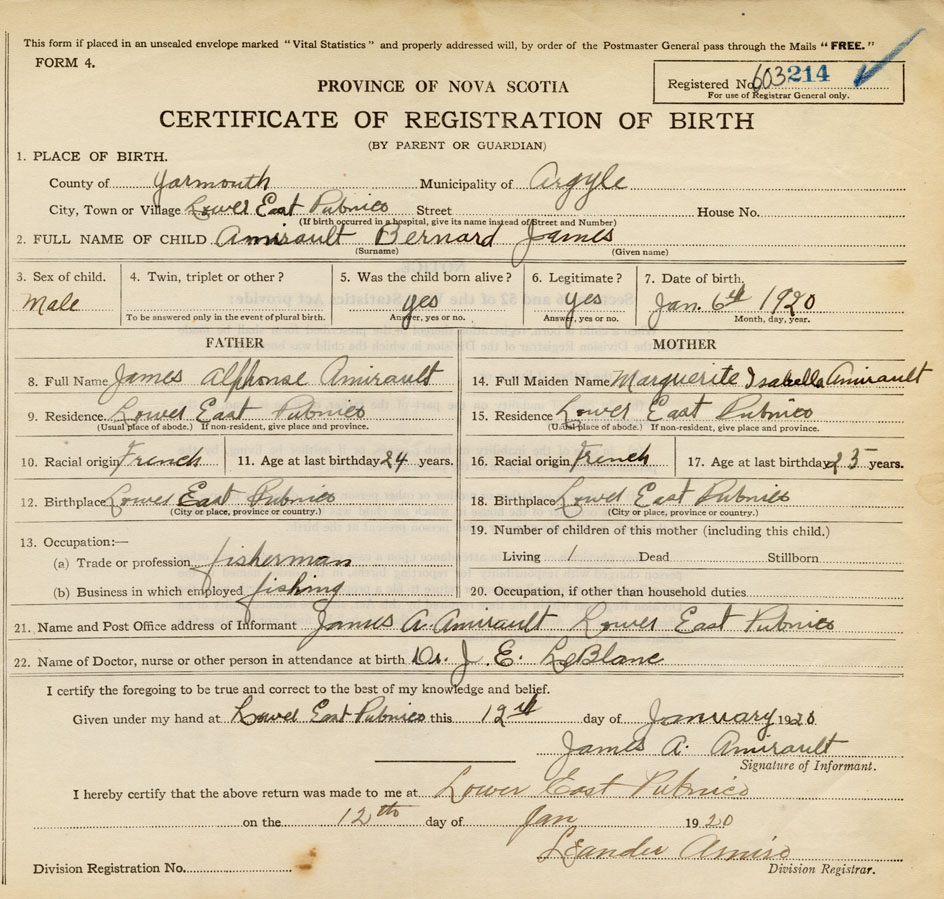 This form if placed in an unsealed envelope marked "Vital Statistics" and properly addressed will, by order of the Postmaster General pass through the Mails "FREE."
FORM 4.
Registered No. 603214
For use of Registrar General only.
PROVINCE OF NOVA SCOTIA
CERTIFICATE OF REGISTRATION OF BIRTH
(BY PARENT OR GUARDIAN)
1. PLACE OF BIRTH.
County of Yarmouth Municipality of Argyle
City, Town or Village Lower East Pubnico Street House No.
(If birth occurred in a hospital, give its name instead of Street and Number)
2. FULL NAME OF CHILD Amirault Bernard James
(Surname) (Given name)
3. Sex of child. 4. Twin, triplet or other? 5. Was the child born alive? 6. Legitimate? 7. Date of birth.
Male yes yes Jan. 6th 1920
To be answered only in the event of plural birth. Answer, yes or no. Answer, yes or no. Month, day, year.
FATHER MOTHER
8. Full Name James Alphonse Amirault 14. Full Maiden Name Marguerite Isabella Amirault
9. Residence Lower East Pubnico 15. Residence Lower East Pubnico
(Usual place of abode.) If non-resident, give place and province. (Usual place of abode.) If non-resident, give place and province.
10. Racial origin French 11. Age at last birthday 24 years. 16. Racial origin French 17. Age at last birthday 25 years.
12. Birthplace Lower East Pubnico 18. Birthplace Lower East Pubnico
(City or place, province or country.) (City or place, province or country.)
13. Occupation:— 19. Number of children of this mother (including this child.)
(a) Trade or profession fisherman Living 1 Dead Stillborn
(b) Business in which employed fishing 20. Occupation, if other than household duties
21. Name and Post Office address of Informant James A. Amirault Lower East Pubnico
22. Name of Doctor, nurse or other person in attendance at birth Dr. J. E. LeBlanc
I certify the foregoing to be true and correct to the best of my knowledge and belief.
Given under my hand at Lower East Pubnico this 12th day of January 1920
James A. Amirault
Signature of Informant.
I hereby certify that the above return was made to me at Lower East Pubnico
on the 12th day of Jan 1920
Leander Amiro
Division Registration No. Division Registrar.